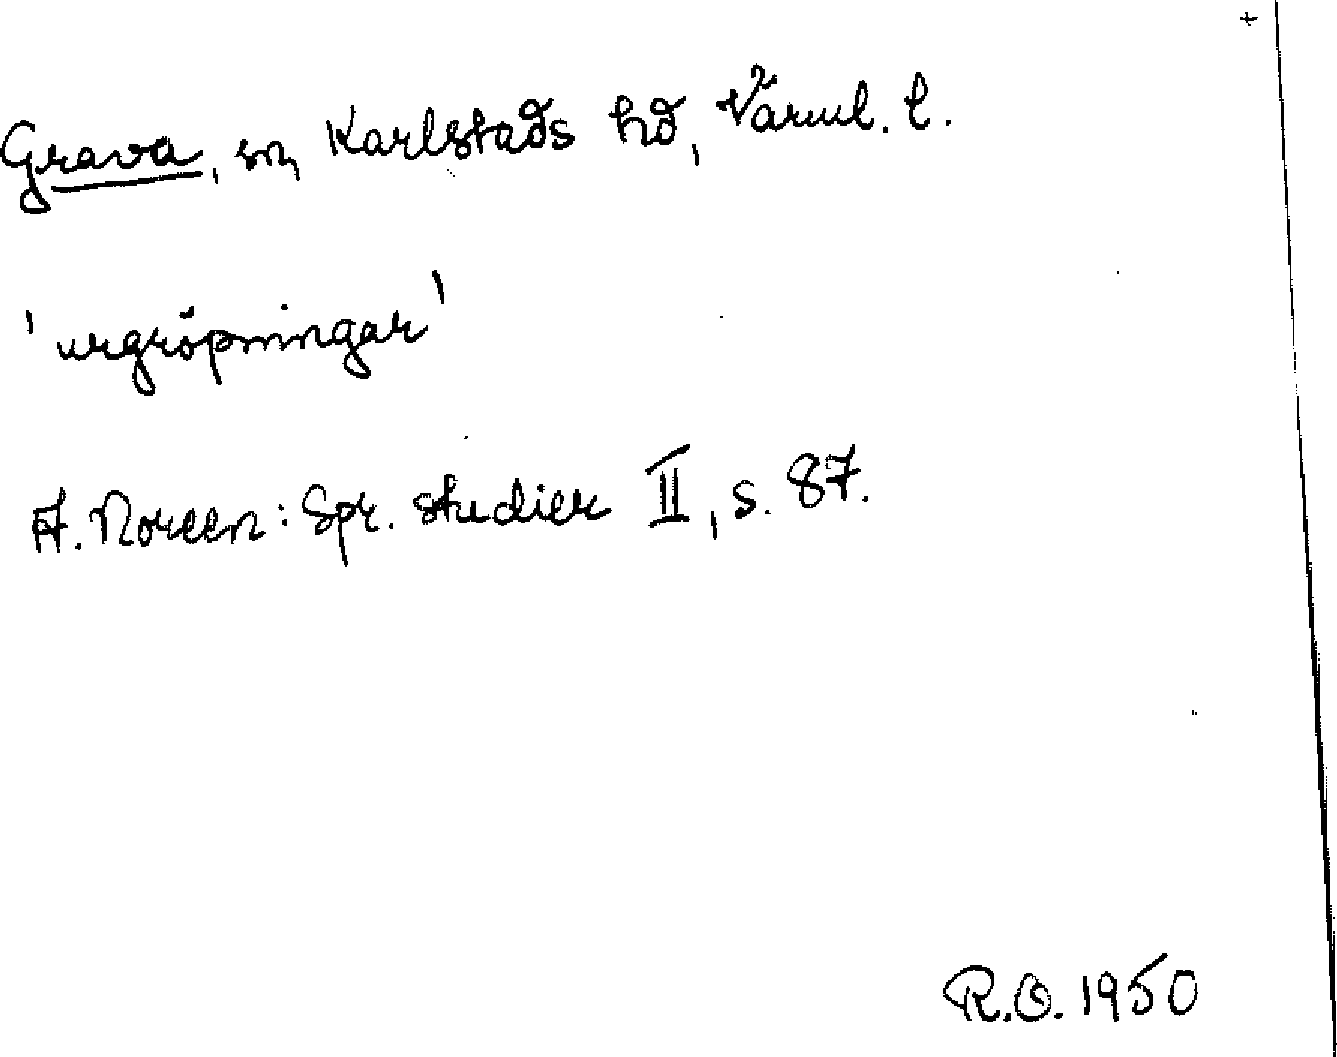 Grava, sn, Karlstads hd, Värml. l.
'urgröpningar'
A. Noreen: Spr. studier II, s. 87.
R.O. 1950